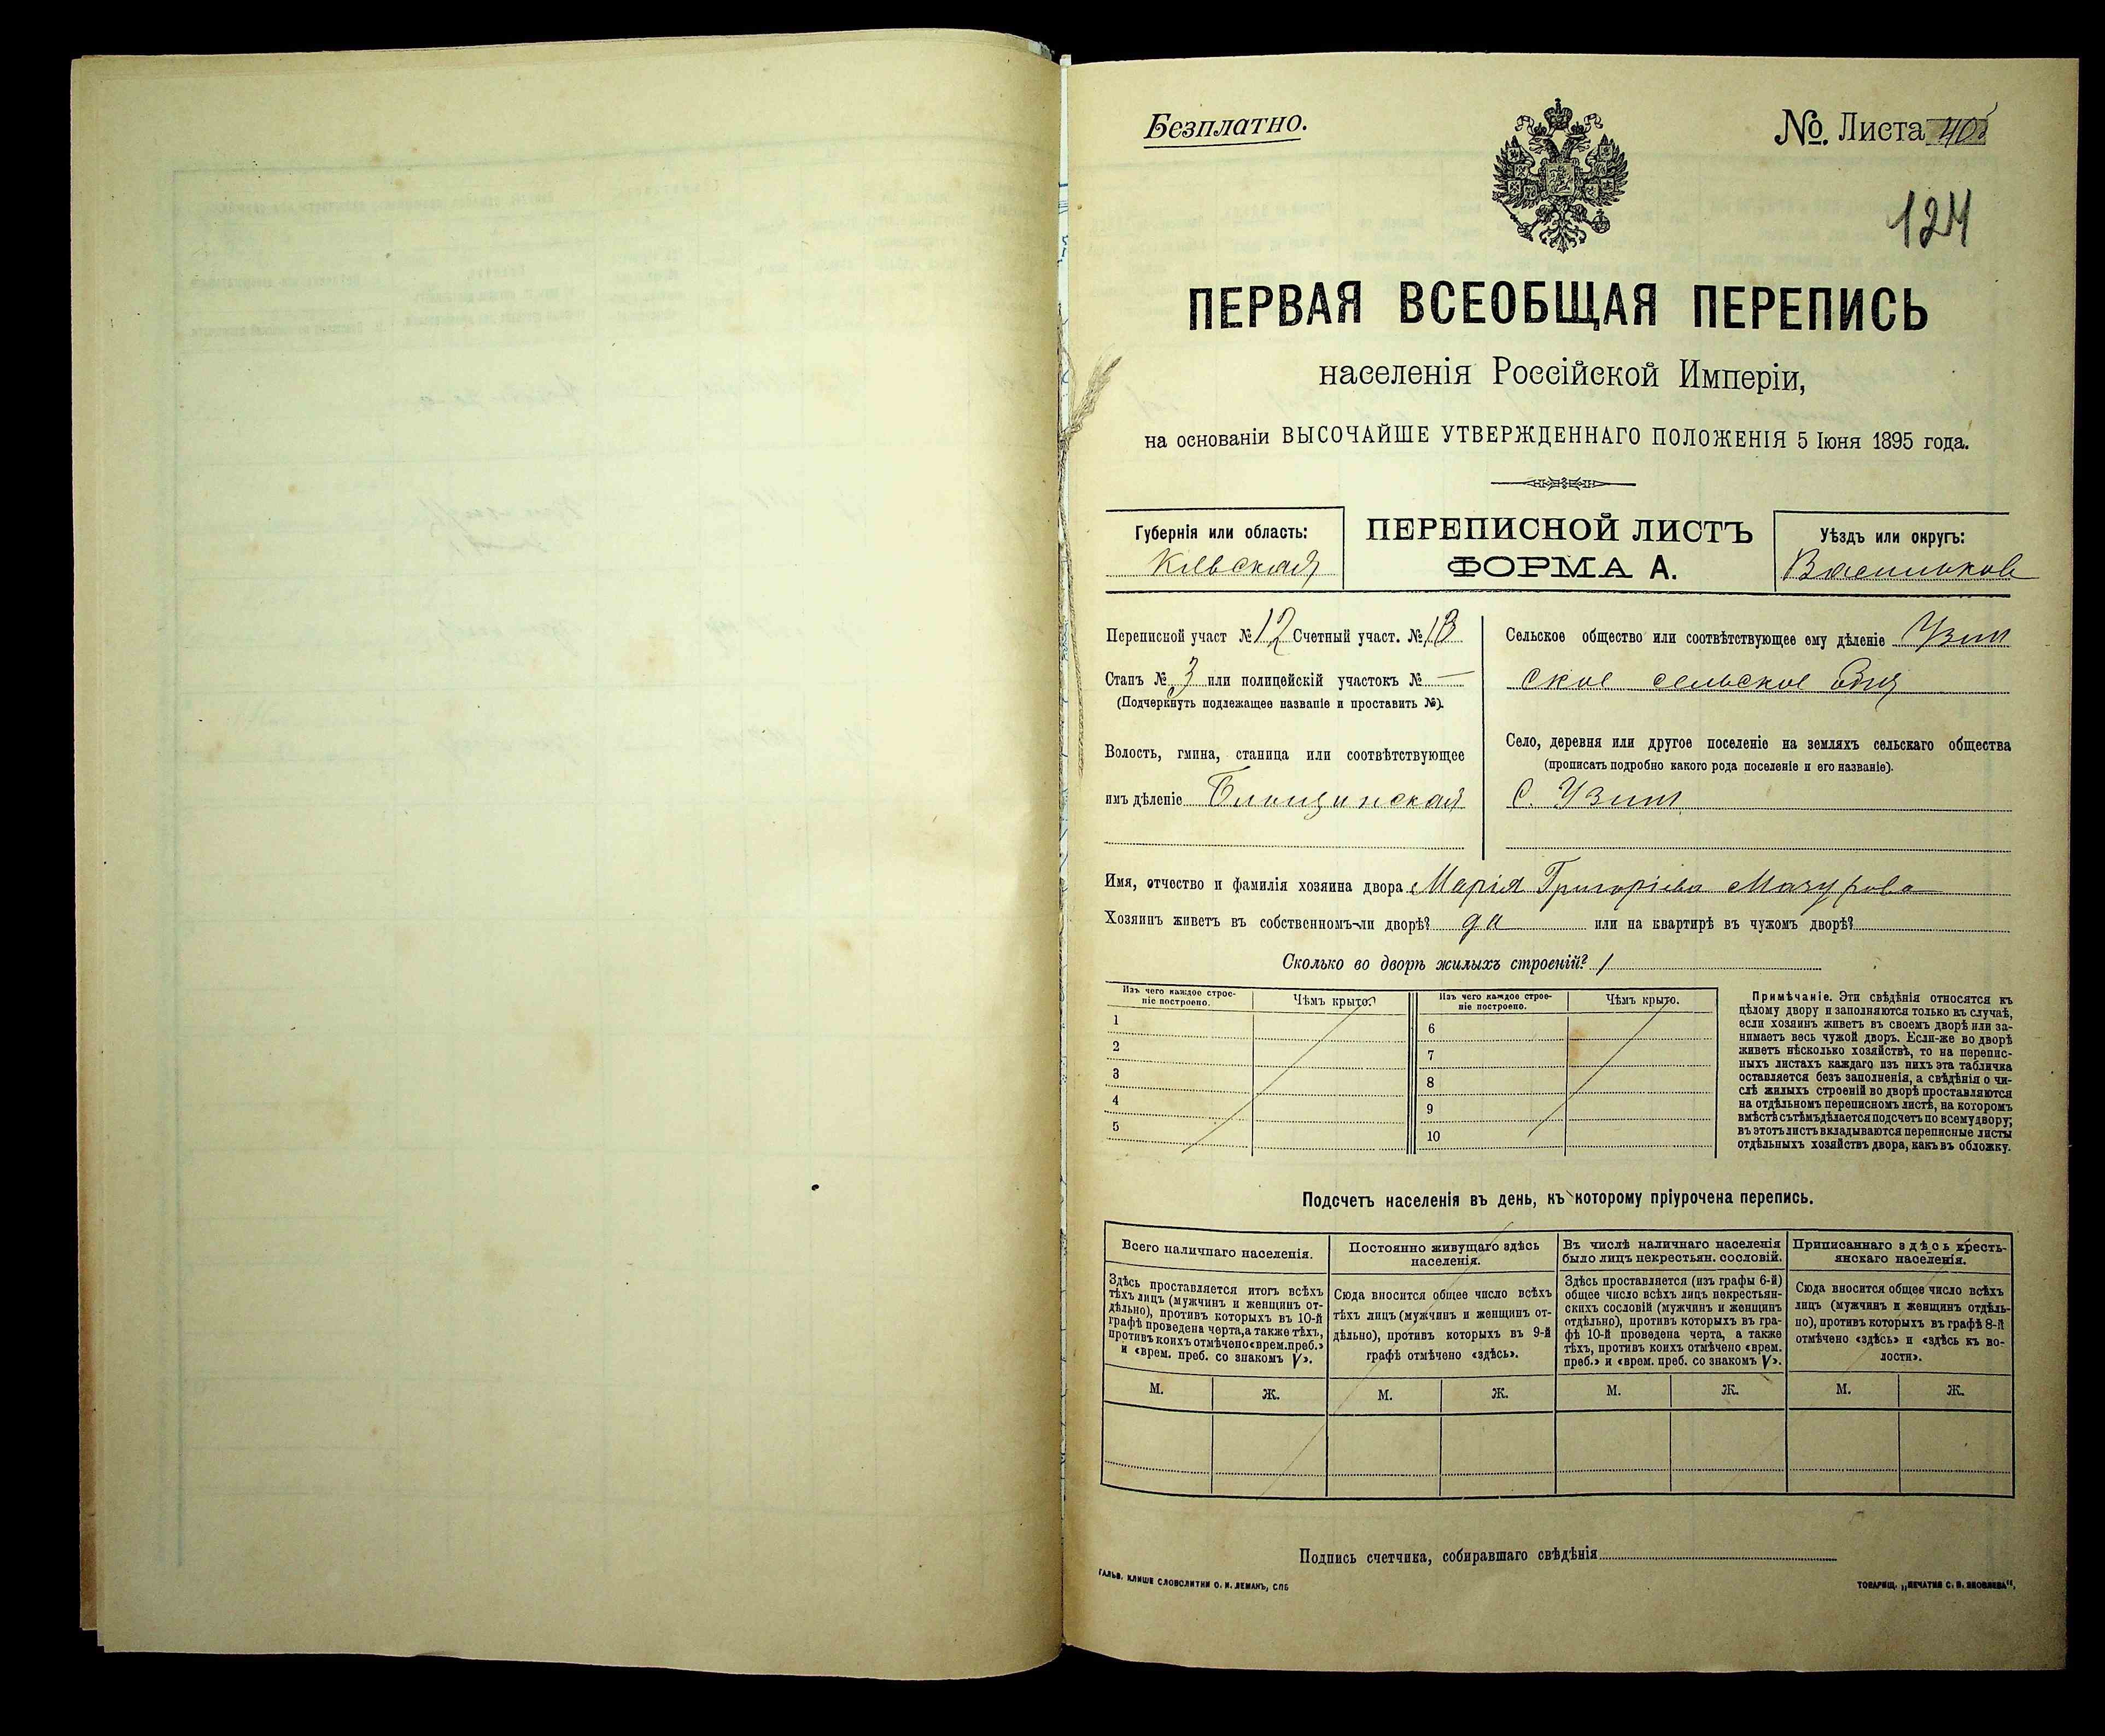 Безплатно.
№. Листа
124
ПЕРВАЯ ВСЕОБЩАЯ ПЕРЕПИСЬ
населенія Россійской Имперіи,
на основаніи ВЫСОЧАЙШЕ УТВЕРЖДЕННАГО ПОЛОЖЕНІЯ 5 Іюня 1895 года.
Губернія или область:
Кіевская
ПЕРЕПИСНОЙ ЛИСТЪ
ФОРМА А.
Уѣздъ или округъ:
Васильков
Переписной участ № 12 Счетный участ. № 13
Станъ № 3 или полицейскій участокъ № —
(Подчеркнуть подлежащее названіе и проставить №).
Волость, гмина, станица или соотвѣтствующее
имъ дѣленіе
Сельское общество или соотвѣтствующее ему дѣленіе Узин
ское сельское
Село, деревня или другое поселеніе на земляхъ сельскаго общества
(прописать подробно какого рода поселеніе и его названіе).
С. Узин
Имя, отчество и фамилія хозяина двора Марія Григоріева Мазурова
Хозяинъ живетъ въ собственномъ-ли дворѣ? да или на квартирѣ въ чужомъ дворѣ?
Сколько во дворѣ жилыхъ строеній? 1
Изъ чего каждое строе-
ніе построено.
Чѣмъ крыто?
1
2
3
4
5
Изъ чего каждое строе-
ніе построено.
Чѣмъ крыто.
6
7
8
9
10
Примѣчаніе. Эти свѣдѣнія относятся къ
цѣлому двору и заполняются только въ случаѣ,
если хозяинъ живетъ въ своемъ дворѣ или за-
нимаетъ весь чужой дворъ. Если-же во дворѣ
живетъ нѣсколько хозяйствъ, то на перепис-
ныхъ листахъ каждаго изъ нихъ эта табличка
оставляется безъ заполненія, а свѣдѣнія о чи-
слѣ жилыхъ строеній во дворѣ проставляются
на отдѣльномъ переписномъ листѣ, на которомъ
вмѣстѣ съ тѣмъ дѣлается подсчетъ по всему двору;
въ этотъ листъ вкладываются переписные листы
отдѣльныхъ хозяйствъ двора, какъ въ обложку.
Подсчетъ населенія въ день, къ которому пріурочена перепись.
Всего наличнаго населенія.
Здѣсь проставляется итогъ всѣхъ
тѣхъ лицъ (мужчинъ и женщинъ от-
дѣльно), противъ которыхъ въ 10-й
графѣ проведена черта, а также тѣхъ,
противъ коихъ отмѣчено «врем. преб.»
и «врем. преб. со знакомъ V».
М. Ж.
Постоянно живущаго здѣсь
населенія.
Сюда вносится общее число всѣхъ
тѣхъ лицъ (мужчинъ и женщинъ от-
дѣльно), противъ которыхъ въ 9-й
графѣ отмѣчено «здѣсь».
М. Ж.
Въ числѣ наличнаго населенія
было лицъ некрестьян. сословій.
Здѣсь проставляется (изъ графы 6-й)
общее число всѣхъ лицъ некрестьян-
скихъ сословій (мужчинъ и женщинъ
отдѣльно), противъ которыхъ въ гра-
фѣ 10-й проведена черта, а также
тѣхъ, противъ коихъ отмѣчено «врем.
преб.» и «врем. преб. со знакомъ V».
М. Ж.
Приписаннаго здѣсь кресть-
янскаго населенія.
Сюда вносится общее число всѣхъ
лицъ (мужчинъ и женщинъ отдѣль-
но), противъ которыхъ въ графѣ 8-й
отмѣчено «здѣсь» и «здѣсь къ во-
лости».
М. Ж.
Подпись счетчика, собиравшаго свѣдѣнія
ГАЛЬВ. КЛИШЕ СЛОВОЛИТНИ О. И. ЛЕМАНЪ, СПБ
ТОВАРИЩ. „ПЕЧАТНЯ С. П. ЯКОВЛЕВА“.